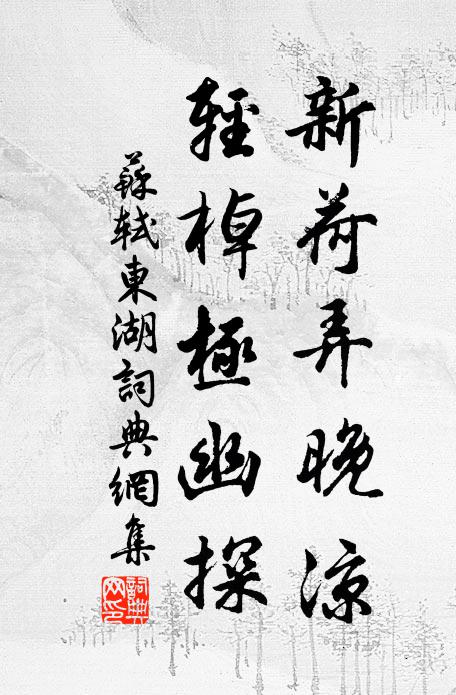 新荷弄晚涼
輕棹極幽探
蘇軾東湖詞典網集